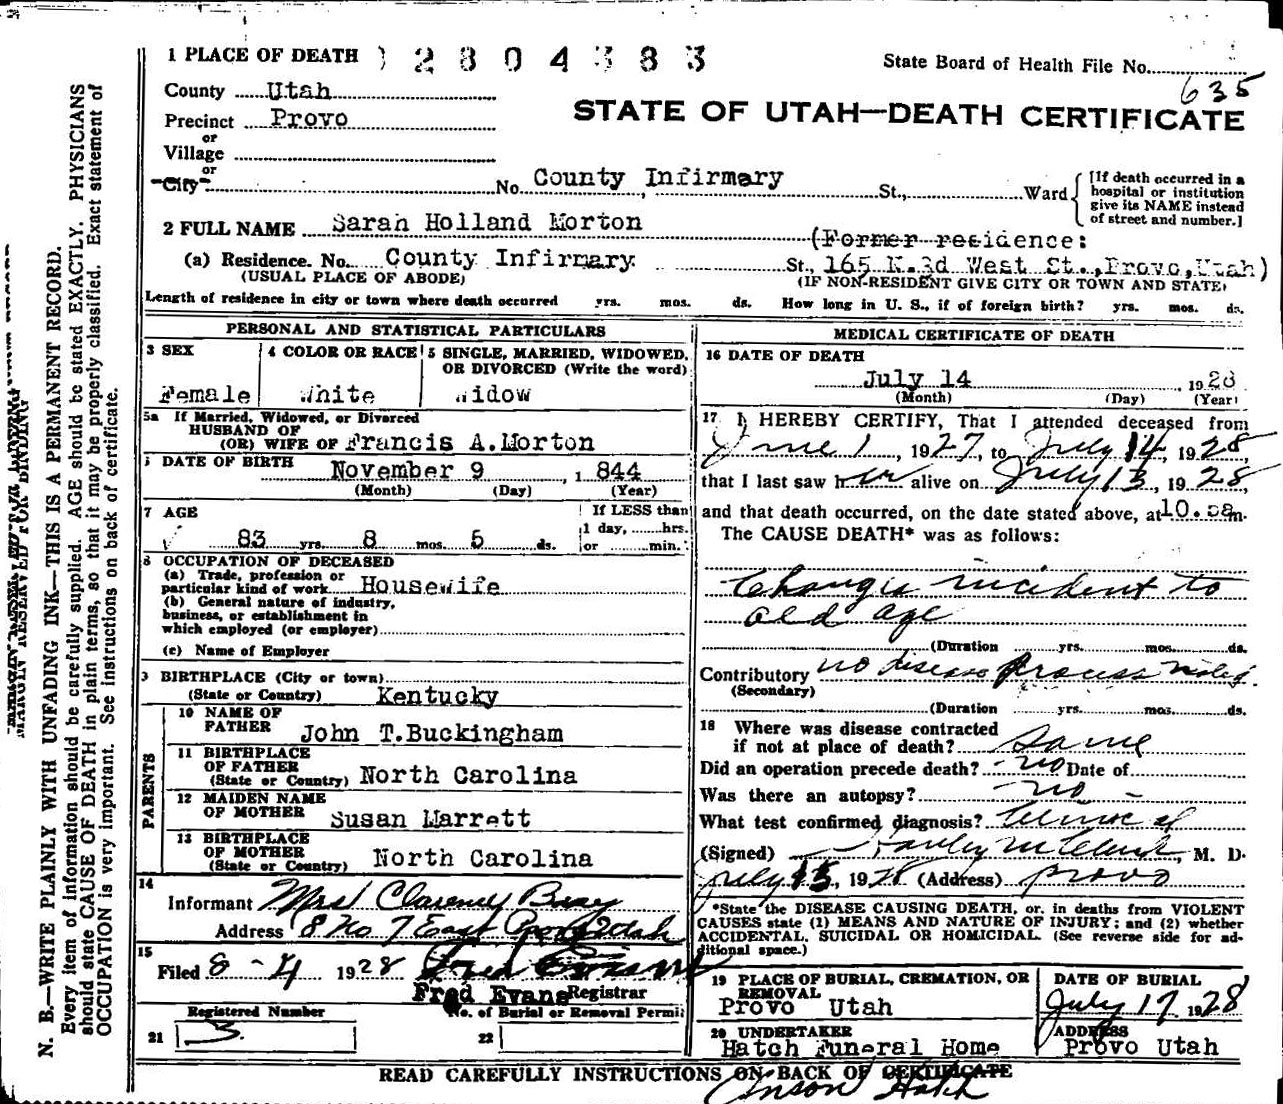 1 PLACE OF DEATH
2 8 0 4 3 8 3
State Board of Health File No.
635
County Utah
STATE OF UTAH—DEATH CERTIFICATE
Precinct Provo
or
Village
or
City No. County Infirmary St., Ward
[If death occurred in a
hospital or institution
give its NAME instead
of street and number.]
2 FULL NAME Sarah Holland Morton
(Former residence:
(a) Residence. No. County Infirmary St., 165 N. 3d West St., Provo, Utah)
(USUAL PLACE OF ABODE) (IF NON-RESIDENT GIVE CITY OR TOWN AND STATE)
Length of residence in city or town where death occurred yrs. mos. ds. How long in U. S., if of foreign birth? yrs. mos. ds.
PERSONAL AND STATISTICAL PARTICULARS
3 SEX
Female
4 COLOR OR RACE
White
5 SINGLE, MARRIED, WIDOWED,
OR DIVORCED (Write the word)
Widow
5a If Married, Widowed, or Divorced
HUSBAND OF
(OR) WIFE OF Francis A. Morton
DATE OF BIRTH November 9, 1844
(Month) (Day) (Year)
7 AGE
83 yrs. 8 mos. 5 ds.
If LESS than
1 day, hrs.
or min.
8 OCCUPATION OF DECEASED
(a) Trade, profession or
particular kind of work Housewife
(b) General nature of industry,
business, or establishment in
which employed (or employer)
(c) Name of Employer
BIRTHPLACE (City or town)
(State or Country) Kentucky
PARENTS
10 NAME OF
FATHER John T. Buckingham
11 BIRTHPLACE
OF FATHER
(State or Country) North Carolina
12 MAIDEN NAME
OF MOTHER Susan Marrett
13 BIRTHPLACE
OF MOTHER
(State or Country) North Carolina
14
Informant Mrs Clarence Bray
Address 8 No 7 East Provo Utah
15
Filed 8-4 1928 Fred Evans
Fred Evans Registrar
Registered Number
21
No. of Burial or Removal Permit
22
MEDICAL CERTIFICATE OF DEATH
16 DATE OF DEATH
July 14, 1928
(Month) (Day) (Year)
17 I HEREBY CERTIFY, That I attended deceased from
June 1, 1927, to July 14, 1928,
that I last saw her alive on July 13, 1928,
and that death occurred, on the date stated above, at 10. am.
The CAUSE DEATH* was as follows:
Changes incident to
old age
(Duration yrs. mos. ds.
Contributory no disease process noted.
(Secondary)
(Duration yrs. mos. ds.
18 Where was disease contracted
if not at place of death? Same
Did an operation precede death? no Date of
Was there an autopsy? no
What test confirmed diagnosis? Clinical
(Signed) M. D.
July 15, 1928 (Address) Provo
*State the DISEASE CAUSING DEATH, or, in deaths from VIOLENT
CAUSES state (1) MEANS AND NATURE OF INJURY; and (2) whether
ACCIDENTAL, SUICIDAL OR HOMICIDAL. (See reverse side for ad-
ditional space.)
19 PLACE OF BURIAL, CREMATION, OR
REMOVAL
Provo Utah
DATE OF BURIAL
July 17, 1928
20 UNDERTAKER
Hatch Funeral Home
ADDRESS
Provo Utah
READ CAREFULLY INSTRUCTIONS ON BACK OF CERTIFICATE
Anson Hatch
MARGIN RESERVED FOR BINDING
N. B.—WRITE PLAINLY WITH UNFADING INK—THIS IS A PERMANENT RECORD.
Every item of information should be carefully supplied. AGE should be stated EXACTLY. PHYSICIANS
should state CAUSE OF DEATH in plain terms, so that it may be properly classified. Exact statement of
OCCUPATION is very important. See instructions on back of certificate.